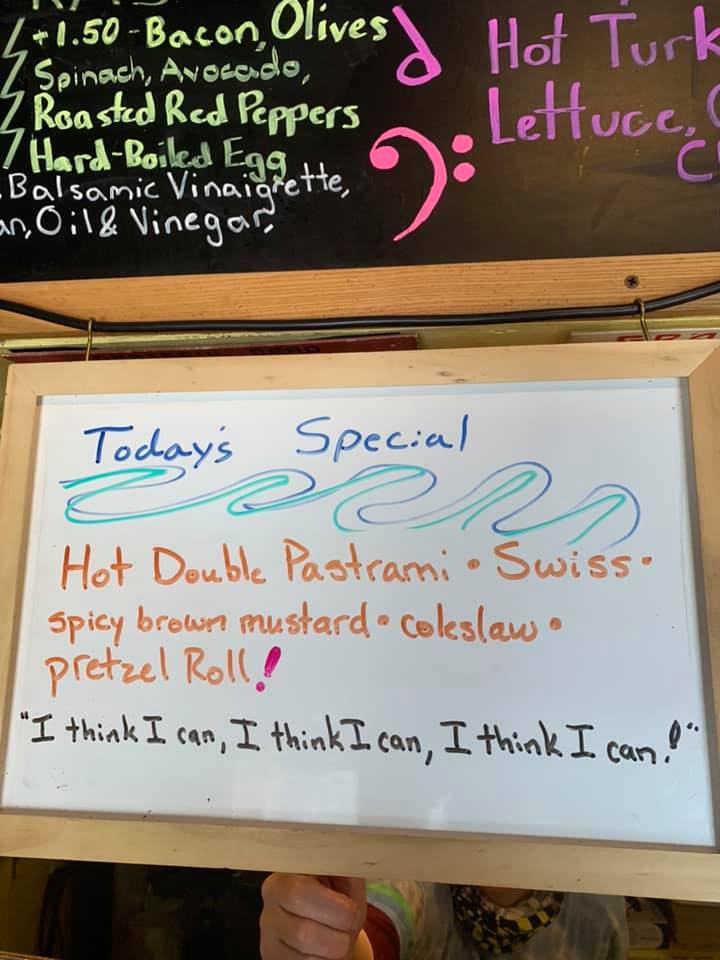 +1.50 - Bacon, Olives
Spinach, Avocado,
Roasted Red Peppers
Hard-Boiled Egg
Balsamic Vinaigrette,
Oil & Vinegar,
Hot
Lettuce,
Today's Special
Hot Double Pastrami • Swiss •
spicy brown mustard • coleslaw •
pretzel Roll!
"I think I can, I think I can, I think I can!"